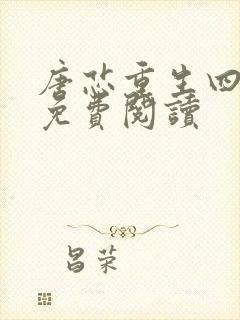 唐芯重生四
免費閱讀
昌荣